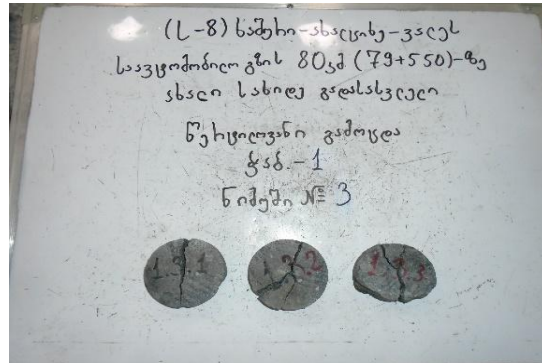 (ს-8) ხაშური-ახალციხე-ვალეს
საავტომობილო გზის 80კმ (79+550)-ზე
ახალი სახიდე გადასასვლელი
წერტილოვანი გამოცდა
ჭაბ.-1
ნიმუში № 3
1.3.1
1.3.2
1.3.3